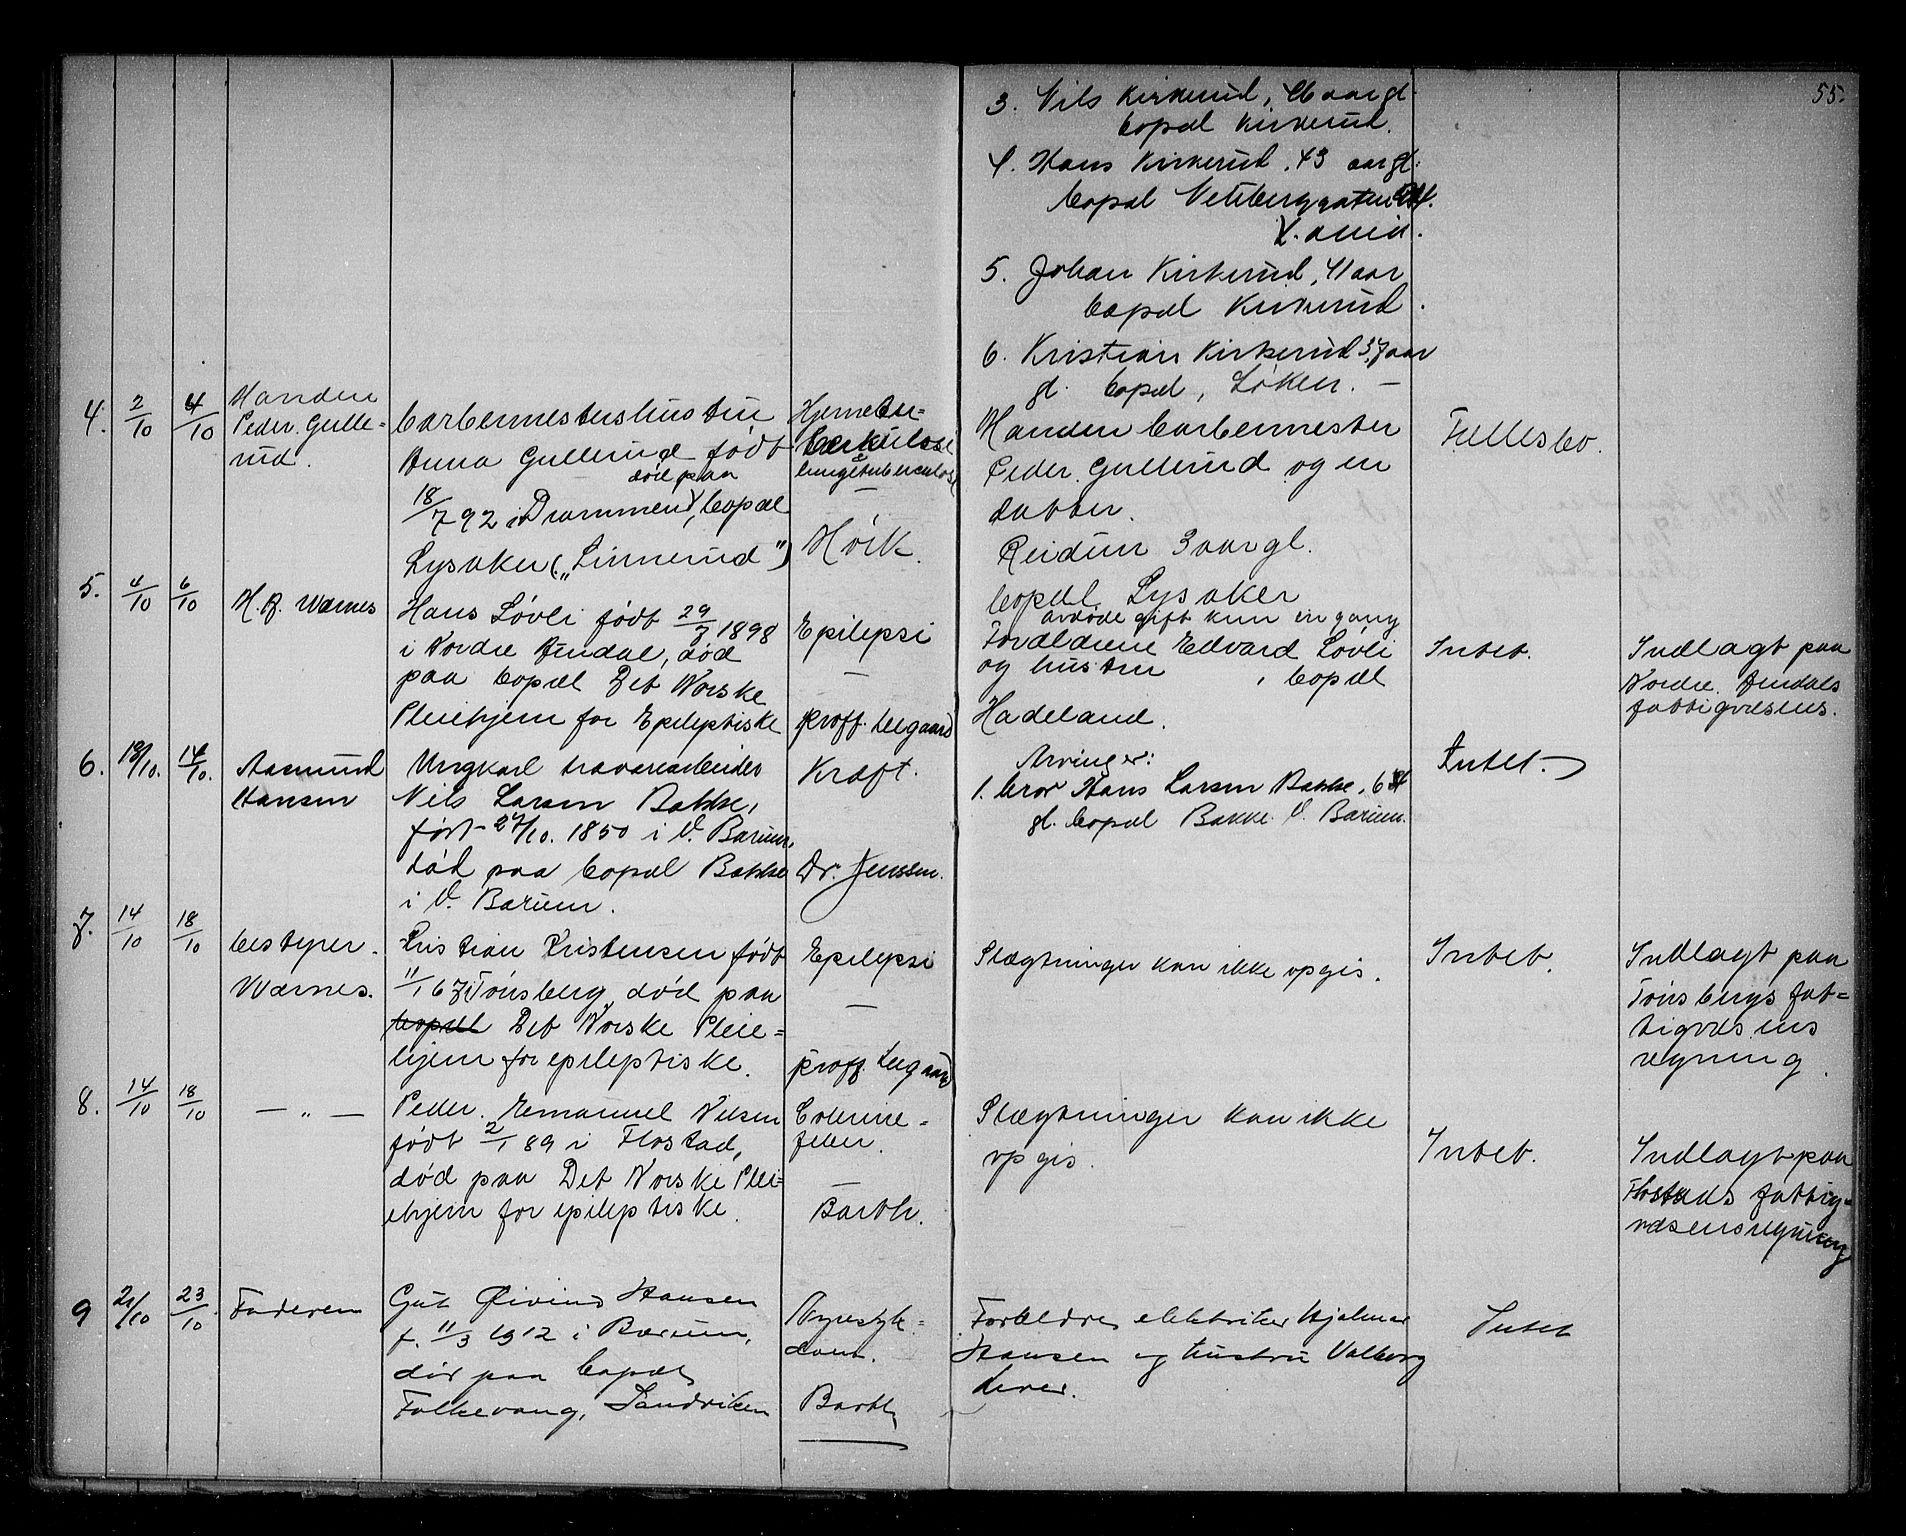 55.
3. Nils Kirkerud, 46 aar gl.
bopæl Kirkerud.
4. Hans Kirkerud, 43 aar gl.
bopæl
5. Johan Kirkerud, 41 aar
bopæl Kirkerud.
6. Kristian Kirkerud 37 aar
gl. bopæl, Løken. —
4. 2/10 4/10
Manden
Peder Gulle-
rud.
barbermestershustru
Anna Gullerud født
død paa
18/7 92 i Drammen, bopæl
Lysaker („Linnerud”)
Hjernetu-
berkulose
lungetuberculose
—
Høik.
Manden barbermester
Peder Gullerud og en
datter.
Reidun 3 aar gl.
bopæl Lysaker
avdøde gift kun en gang
Fællesbo.
5. 4/10 6/10
H. B. Wærnes
Hans Løvli født 29/7 1898
i Nordre Aurdal, død
paa bopæl Det Norske
Pleiehjem for Epileptiske
Epilepsi
—
proff. Leegaard
Forældrene Edvard Løvli
og hustru , bopæl
Hadeland.
Intet.
Indlagt paa
Nordre Aurdals
fattigvæsens.
6. 13/10. 14/10.
Aasmund
Hansen
Ungkarl
Nils Larsen Bakke,
født 27/10. 1850 i V. Bærum,
død paa bopæl Bakke
i V. Bærum.
Kræft.
Dr. Jenssen.
Arvinger:
1. bror Hans Larsen Bakke, 64
gl. bopæl Bakke V. Bærum.
Intet.
7. 14/10 18/10
bestyrer
Wærnes.
Kristian Kristensen født
11/1 67 i Tønsberg død paa
bopæl Det Norske Pleie-
hjem for epileptiske.
Epilepsi
—
proff. Leegaard
Slægtninger kan ikke opgis.
Intet.
Indlagt paa
Tønsbergs fat-
tigvæsens
regning.
8. 14/10 18/10
— „ —
Peder Emanuel Nilsen
født 2/1 89 i Flostad,
død paa Det Norske Plei-
ehjem for epileptiske.
feber.
—
Barth.
Slægtninger kan ikke
opgis.
Intet.
Indlagt paa
Flostads fattig-
væsens regning
9 21/10 23/10.
Faderen
Gut Øivind Hansen
f. 11/3 1912 i Bærum,
død paa bopæl
Folkevang, Sandviken
Nyresyk-
dom.
Barth
Forældre, elektriker Hjalmar
Hansen og hustru Valborg
lever.
Intet